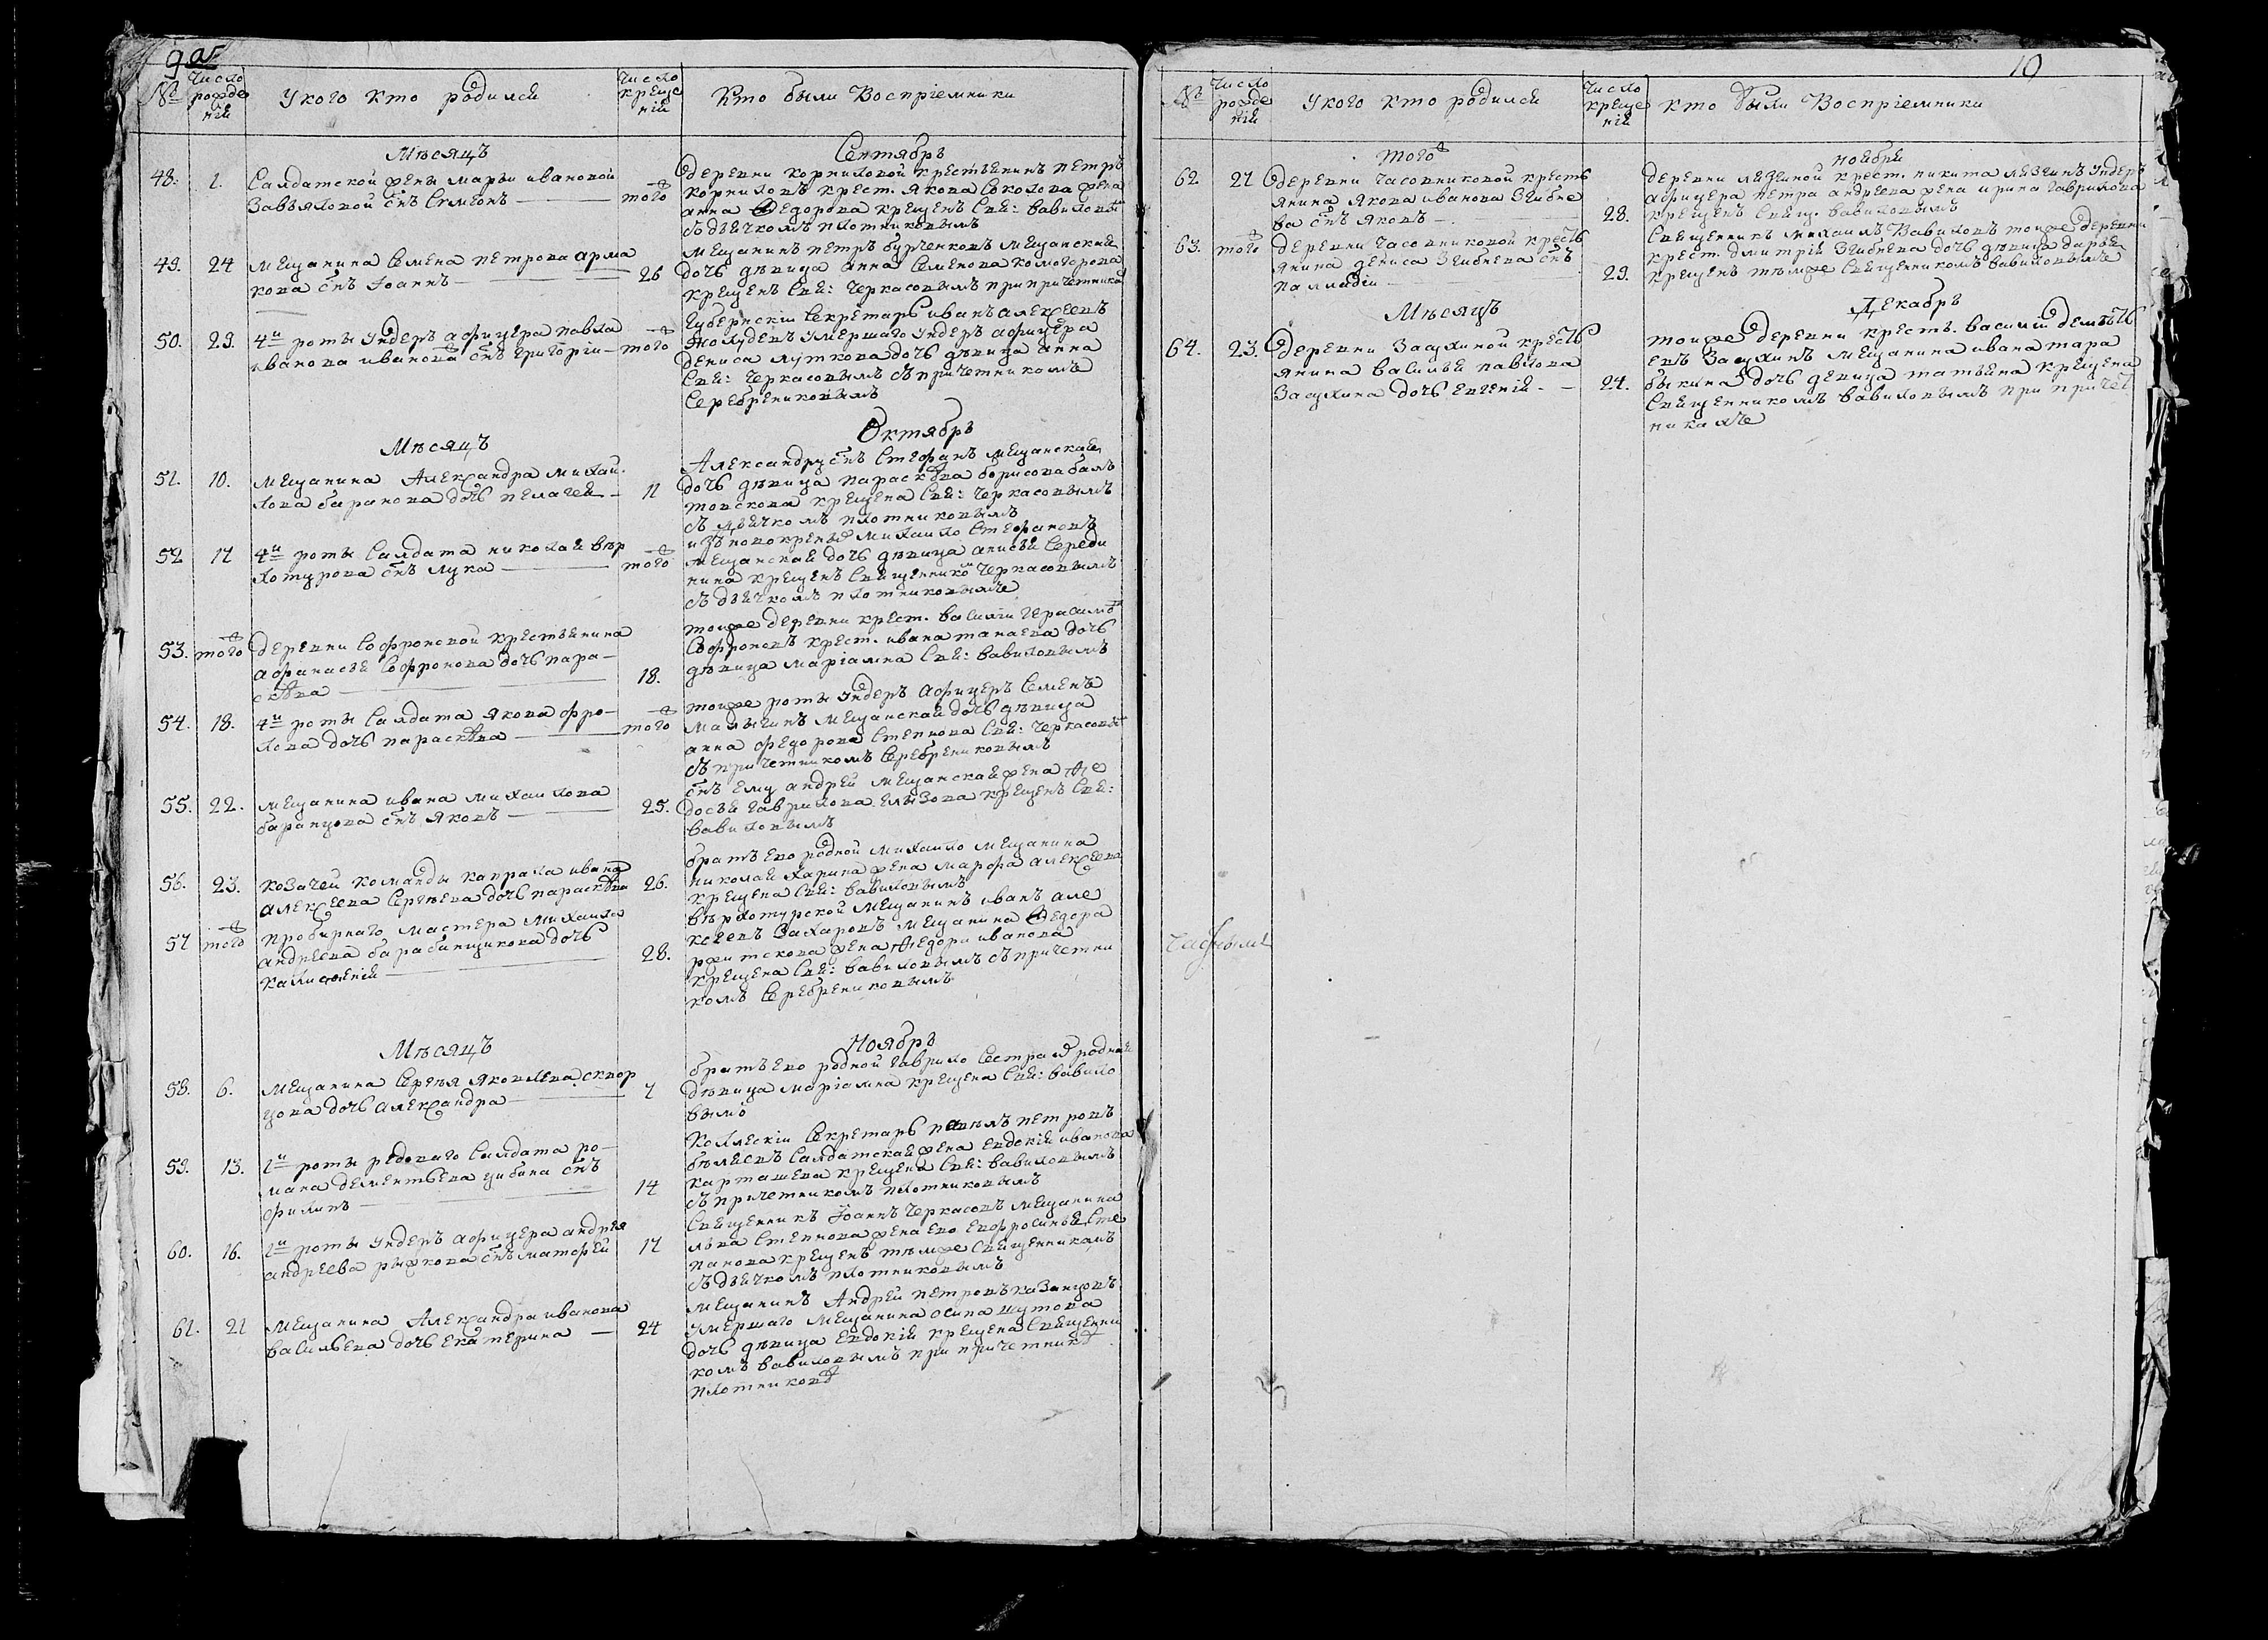 9 об
№ Число рожде нія У кого кто родился Число креще нія Кто были Воспріемники
Мѣсяцъ Сентябрь
48. 1. Салдатской жены Марьи Ивановой
Завьяловой снъ Симеонъ — того
деревни Корниловой крестьянинъ Петръ
Корниловъ крест. Якова Соколова жена
анна Федорова крещенъ Свя: Вавиловым
съ дьячкомъ Плотниковымъ
49. 24 Мещанина Семена Петрова арма
кова снъ Іоаннъ — 26
Мещанинъ Петръ бурченковъ мещанская
дочь дѣвица анна Семенова Коморова
крещенъ Свя: Черкасовымъ при причетнике
50. 29. 4й роты Ундеръ афицера павла
иванова иванова снъ григорій — того
Губернскій Секретарь иванъ алексеевъ
умершаго Ундеръ афицера
дениса лупкова дочь дѣвица анна
Свя: Черкасовымъ съ причетникомъ
Серебрениковымъ
Мѣсяцъ Октябрь
51. 10. Мещанина Александра михай
лова баранова дочь пелагея — 11
Александру снъ Стефанъ мещанская
дочь дѣвица параскѣва борисова балъ
товскова крещена Свя: Черкасовымъ
съ дьячкомъ плотниковымъ
52 17 4й роты Салдата николая вѣр
хотурова снъ лука — того
изъ новокрены михаило Стефановъ
мещанская дочь дѣвица анисья Середи
нина крещенъ Священником Черкасовымъ
съ дьячкомъ плотниковымъ
53. того деревни Софроновой крестьянина
афанасья Софронова дочь пара
скѣва — 18.
тоиже деревни крест. василій герасимъ
Софроновъ крест. ивана танаева дочь
дѣвица маріамна Свя: вавиловымъ
54. 18. 4й роты Салдата Якова фро
лова дочь параскѣва — того
тоиже роты Ундеръ афицеръ Семенъ
малыгинъ мещанская дочь дѣвица
анна федорова Степнова Свя: Черкасовы
съ причетникомъ Серебрениковымъ
55. 22. мещанина ивана михаилова
баранцова снъ Яковъ — 25.
снъ ему андрей мещанская жена Фе
досья гаврилова елизова крещенъ Свя:
вавиловымъ
56. 23. козачей команды капрала ивана
алексеева Сергѣева дочь параскѣва 26.
братъ ево родной михаило мещанина
николая ларина жена марфа алексеева
крещена Свя: вавиловымъ
57 того пробирнаго мастера михаила
андреева барабанщикова дочь
калисфенія — 28.
вѣрхотурской мещанинъ иванъ але
ксеевъ Захаровъ мещанина Федора
ржитскова жена Федора иванова
крещена Свя: вавиловымъ съ причетни
комъ Серебрениковымъ
Мѣсяцъ Ноябрь
58. 6. Мещанина Сергѣя Яковлева сквор
цова дочь александра — 7
братъ ево родной гаврило Сестра ж родная
дѣвица маріамна крещена Свя: вавило
вымъ
59. 13. 1й роты рядоваго Салдата ро
мана дементьева цибина снъ
филипъ — 14
Коллескій Секретарь павелъ петровъ
бѣляевъ Салдатская жена евдокія иванова
карташева крещена Свя: вавиловымъ
съ причетникомъ плотниковымъ
60. 16. 1й роты Ундеръ афицера андрея
андреева рыжкова снъ матфей 17
Священникъ Іоаннъ Черкасовъ мещанина
льва Степнова жена ево Евфросинья Сте
панова крещенъ тѣмже Священникомъ
съ дьячкомъ плотниковымъ
61. 21 Мещанина Александра иванова
васильева дочь екатерина — 24
мещанинъ Андрей петровъ казанцовъ
умершаго мещанина осипа шутова
дочь дѣвица евдокія крещена Священни
комъ вавиловымъ при причетникѣ
плотниковѣ
10
№ Число рожде нія У кого кто родился Число креще нія кто были Воспріемники
того ноября
62 21 деревни Часовниковой кресть
янина Якова иванова Згибне
ва снъ Яковъ — 28.
деревни лязгиной крест. никита лязгинъ Ундеръ
афицера петра андреева жена ирина гаврилова
крещенъ Свящ. вавиловымъ
63. того деревни Часовниковой кресть
янина дениса Згибнева снъ
палладій — 29.
Священникъ михаилъ Вавиловъ тоиже деревни
крест. дмитрій Згибнева дочь дѣвица дарья
крещенъ тѣмже Священникомъ вавиловымъ
Мѣсяцъ Декабрь
64. 23. деревни Засухиной кресть
янина василья павлова
Засухина дочь евгенія — 24.
тоиже деревни кресть. василій дементь
евъ Засухинъ мещанина ивана тара
быкина дочь девица татьяна крещена
Священникомъ вавиловымъ при причет
никахъ